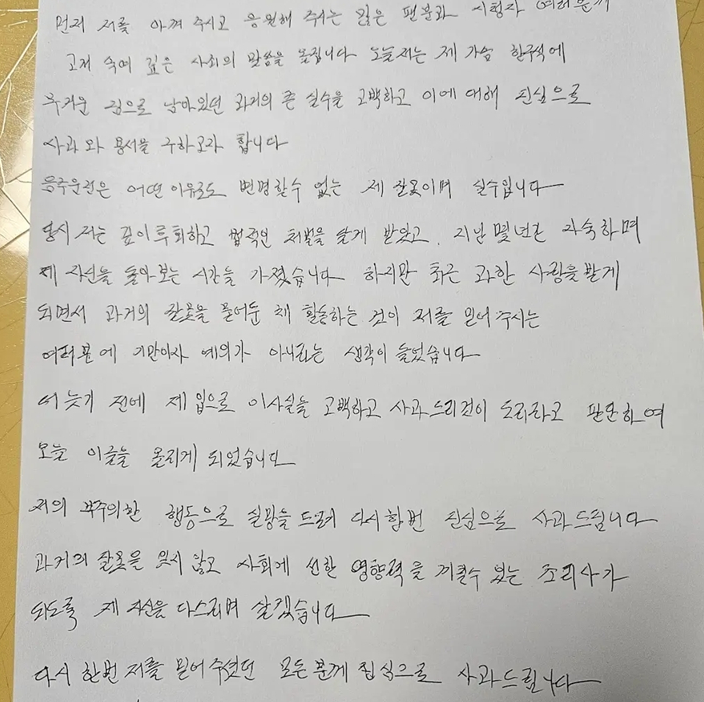 먼저 저를 아껴 주시고 응원해 주시는 많은 팬분과 시청자 여러분께
고개 숙여 깊은 사죄의 말씀을 올립니다 오늘 저는 제 가슴 한구석에
무거운 짐으로 남아있던 과거의 큰 실수를 고백하고 이에 대해 진심으로
사과와 용서를 구하고자 합니다
음주운전은 어떤 이유로도 변명할수 없는 제 잘못이며 실수입니다
당시 저는 깊이 후회하고 법적인 처벌을 달게 받았고, 지난 몇년간 자숙하며
제 자신을 돌아보는 시간을 가졌습니다 하지만 최근 과한 사랑을 받게
되면서 과거의 잘못을 묻어둔 채 활동하는 것이 저를 믿어 주시는
여러분에 기만이자 예의가 아니라는 생각이 들었습니다
더 늦기 전에 제 입으로 이사실을 고백하고 사과 드리것이 도리라고 판단하여
오늘 이글을 올리게 되었습니다
저의 부주의한 행동으로 실망을 드려 다시한번 진심으로 사과드립니다
과거의 잘못을 잊지 않고 사회에 선한 영향력을 끼칠수 있는 조리사가
되도록 제 자신을 다스리며 살겠습니다
다시 한번 저를 믿어 주셨던 모든 분께 진심으로 사과드립니다